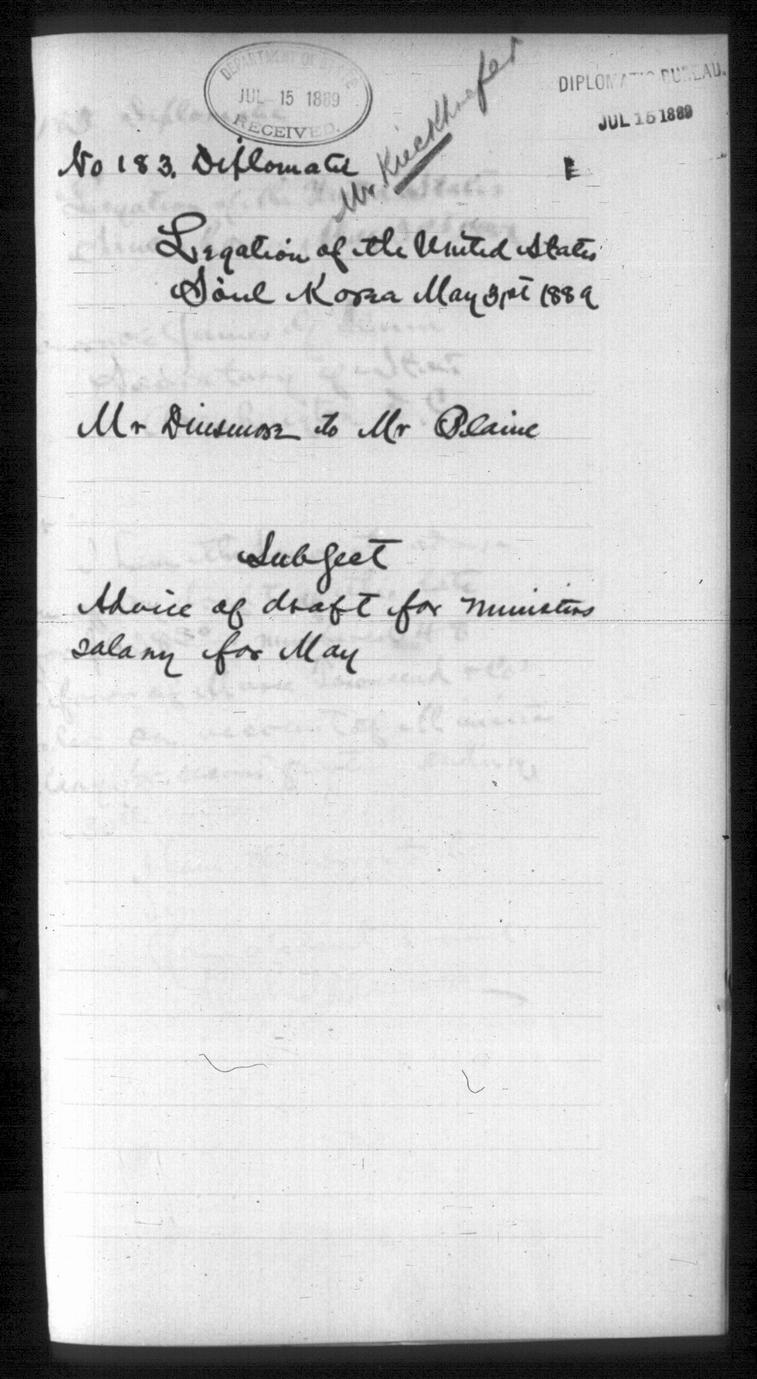 DEPARTMENT OF STATE
JUL 15 1889
RECEIVED.
DIPLOMATIC BUREAU.
JUL 15 1889
Mr. Kieckhoefer
No 183. Diplomatic
Legation of the United States
Söul Korea May 31st 1889
Mr Dinsmore to Mr Blaine
Subject
Advice of draft for ministers
salary for May